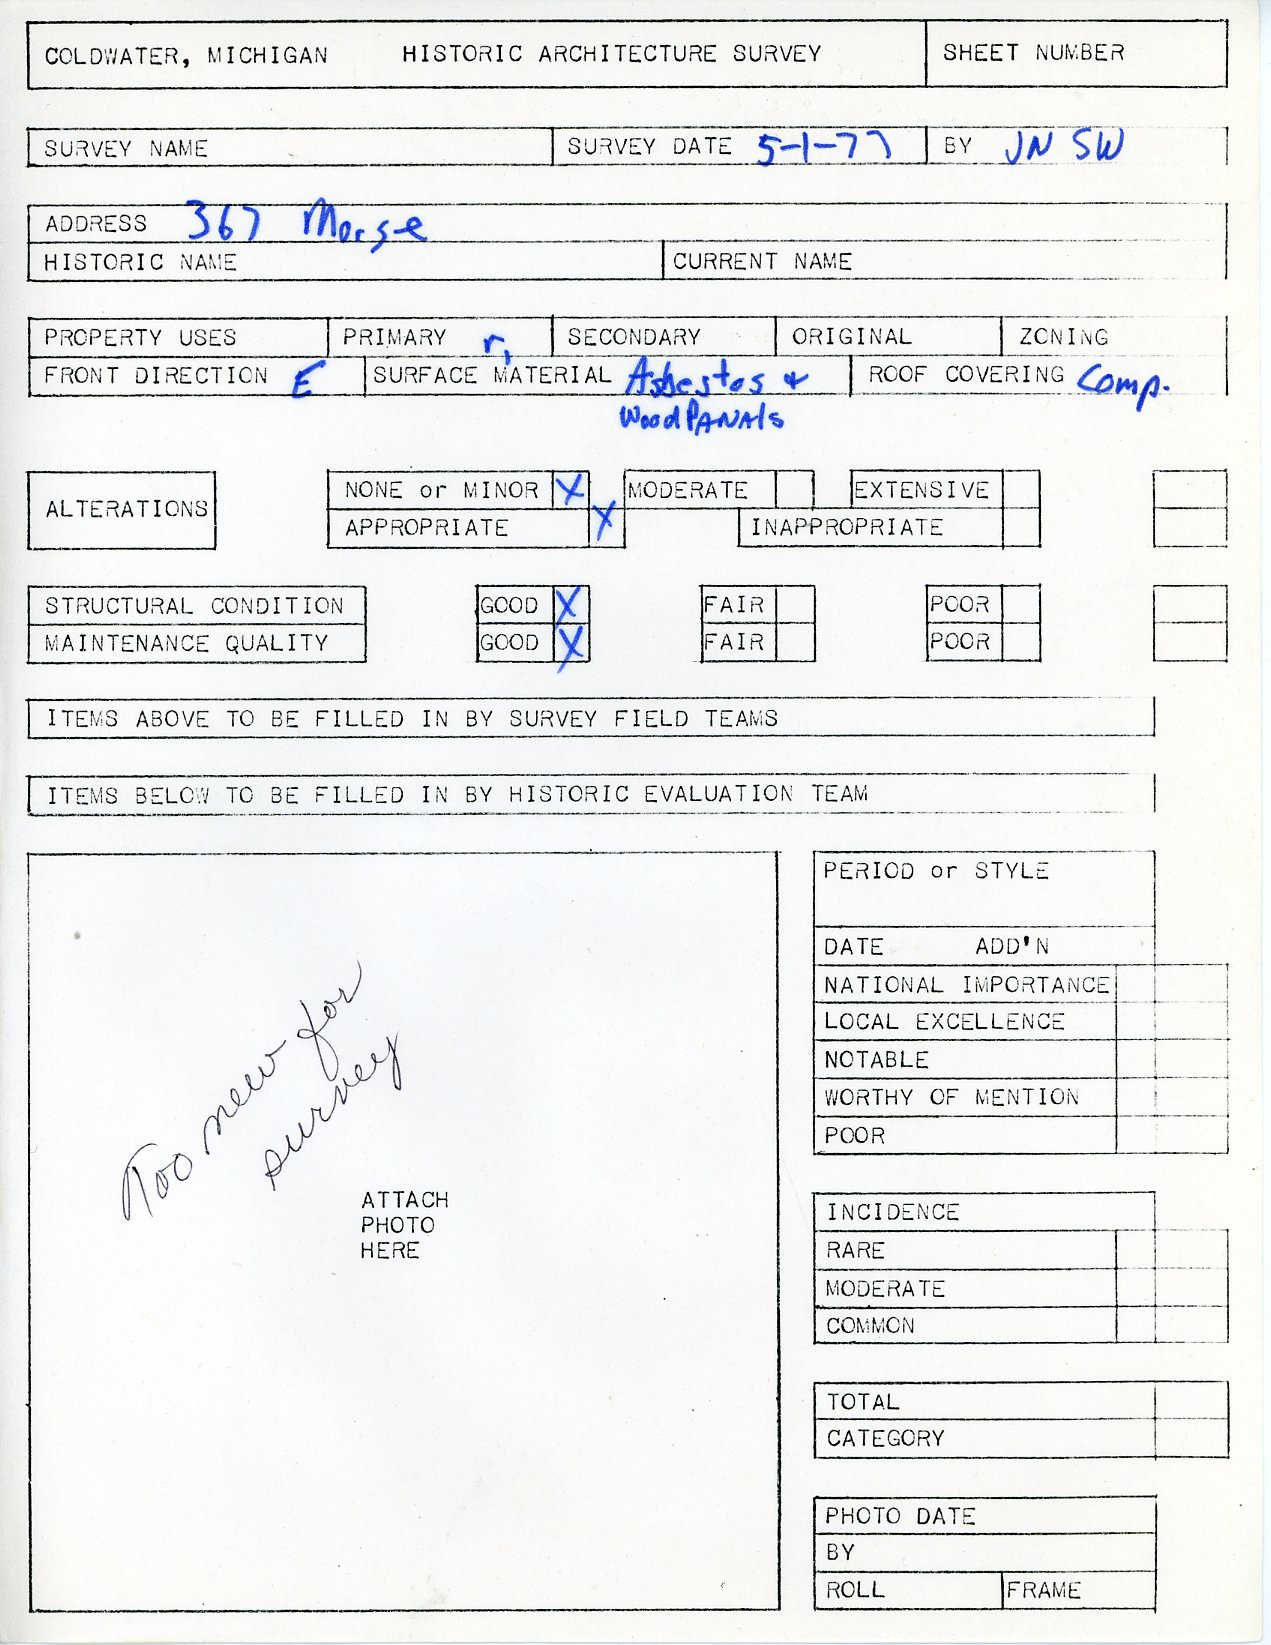 COLDWATER, MICHIGAN HISTORIC ARCHITECTURE SURVEY SHEET NUMBER
SURVEY NAME SURVEY DATE 5-1-77 BY JN SW
ADDRESS 367 Morse
HISTORIC NAME CURRENT NAME
PROPERTY USES PRIMARY r, SECONDARY ORIGINAL ZONING
FRONT DIRECTION E SURFACE MATERIAL Asbestos + ROOF COVERING Comp.
Wood PANAls
ALTERATIONS NONE or MINOR X MODERATE EXTENSIVE
APPROPRIATE X INAPPROPRIATE
STRUCTURAL CONDITION GOOD X FAIR POOR
MAINTENANCE QUALITY GOOD X FAIR POOR
ITEMS ABOVE TO BE FILLED IN BY SURVEY FIELD TEAMS
ITEMS BELOW TO BE FILLED IN BY HISTORIC EVALUATION TEAM
Too new for
survey
ATTACH
PHOTO
HERE
PERIOD or STYLE
DATE ADD'N
NATIONAL IMPORTANCE
LOCAL EXCELLENCE
NOTABLE
WORTHY OF MENTION
POOR
INCIDENCE
RARE
MODERATE
COMMON
TOTAL
CATEGORY
PHOTO DATE
BY
ROLL FRAME